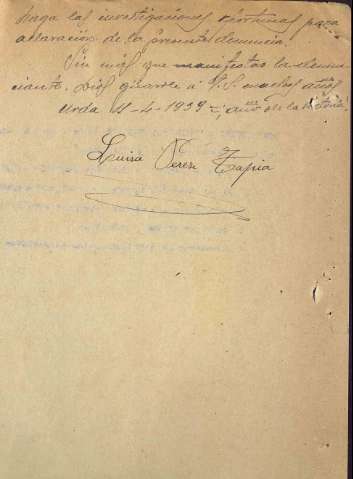 haga las investigaciones oportunas para
aclaración de la presente denuncia.
Sin mas que manifestar la denun-
ciante. Dios guarde a V.S. muchos años
Urda 4-4-1939 = año de la Victoria
Luisa Perez Tapia